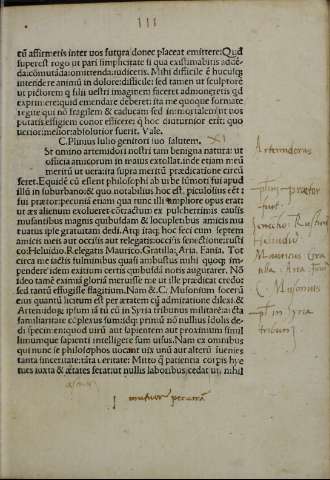 III
tū affirmetis inter vos futura donec placeat emittere: Quod
superest rogo ut pari simplicitate si qua existimabitis addē
da: cōmutāda: omittenda: iudicetis. Mihi difficile ē hucusq;
intendere animū in dolore: difficile: sed tamen ut sculptorē
ut pictorem q filii vestri imaginem faceret admoneretis qd
exprimere: quid emendare deberet: ita me quoque formate
regite qui nō fragilem & caducam sed immortalem ut vos
putatis effigiem conor efficere: q hoc diuturnior erit: quo
uerior: melior: absolutior fuerit. Vale.
C. Plinius Iulio genitori suo salutem. XI
St omnino artemidori nostri tam benigna natura: ut
officia amicorum in maius extollat. inde etiam meū
meritū ut uera: ita supra meritū prædicatione circū
feret. Equidē cū essent philosophi ab urbe sūmoti fui apud
illū in suburbano: & quo notabilius hoc est. piculosius eēt:
fui prætor: pecuniā etiam qua tunc illi
ut æs alienum exolueret: cōtractum ex pulcherrimis causis
musantibus magnis quibusdam & locupletibus amicis mu
tuatus ipse gratuitam dedi. Atq; hæc feci cum septem
amicis meis aut occisis aut relegatis: occisis senetione: rusti
co: Heluidio. Relegatis Maurico. Gratilla: Aria. Fania. Tot
circa me iactis fulminibus quasi ambustus mihi quoq; im
pendere idem exitium certis quibusdā notis augurarer. Nō
ideo tamē eximiā gloriā meruisse me ut ille prædicat credo:
sed tantū effugisse flagitium. Nam & .C. Musonium socerū
eius quantū licitum est per ætatem cū admiratione dilexi. &
Artemidorū ipsum iā tū cū in Syria tribunus militarē: arcta
familiaritate cōplexus sum: idq; primū nō nullius idolis de
di specimen: quod uirū aut sapientem aut proximum simil
limumque sapienti intelligere sum uisus. Nam ex omnibus
qui nunc se philosophos uocant uix unū aut alterū fuenies
tanta sinceritate: tāta ueritate: Mitto q patientia corpis hye
mes iuxta & æstates ferat: ut nullis laboribus cedat: ut nihil
Artemidorus
plin⁹ prætor
fuit.
Heluidio
Mauricus Gra
tilla Aria Fani
C. Musonius
pl in Syria
tribun⁹
mutuor pecuniā